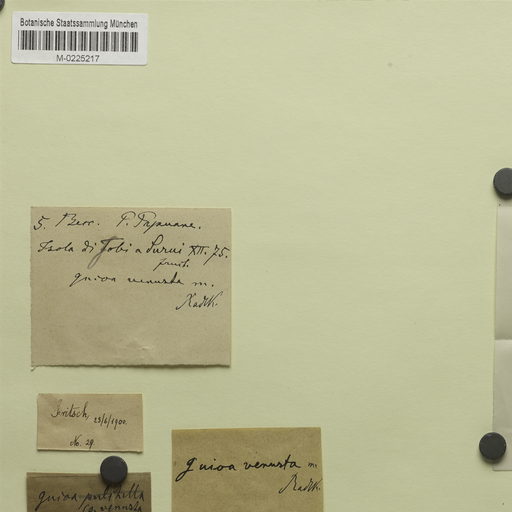 Botanische Staatssammlung München
M-0225217
5. Becc. P. Papuane.
Isola di Jobi a Surui XII. 75.
fruct.
guioa venusta m.
Radlk.
23/6/1900.
No. 29.
guioa venusta m.
Radlk.
guioa
venusta